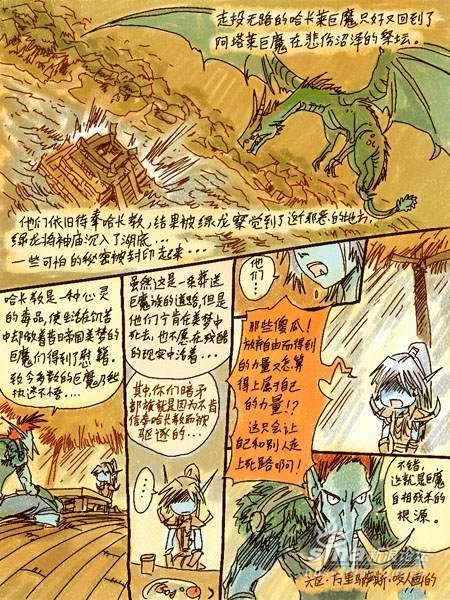 走投无路的哈卡莱巨魔只好又回到了
阿塔莱巨魔在悲伤沼泽的祭坛。
他们依旧侍奉哈卡教,结果被绿龙察觉到了这个邪恶的地方,
绿龙将神庙沉入了湖底...
一些可怕的秘密被封印起来...
他
们
...
那些傻瓜!
放弃自由而得到
的力量又怎算
得上属于自己
的力量!?
这只会让
自己和别人走
上死路啊!
虽然这是一条葬送
巨魔族的道路,但是
他们宁肯在美梦中
死去,也不愿在残酷
的现实中活着...
其中,你们暗矛
部族就是因为不肯
信奉哈卡教而被
驱逐的...
哈卡教是一种心灵
的毒品,使生活在饥苦
中却做着昔日帝国美梦的
巨魔们得到了慰藉。
致今多数的巨魔乃
执迷不悟...
...
不错,
这就是巨魔
自相残杀的
根源。
sina新浪论坛
六区·万里马萨斯·咬人画的